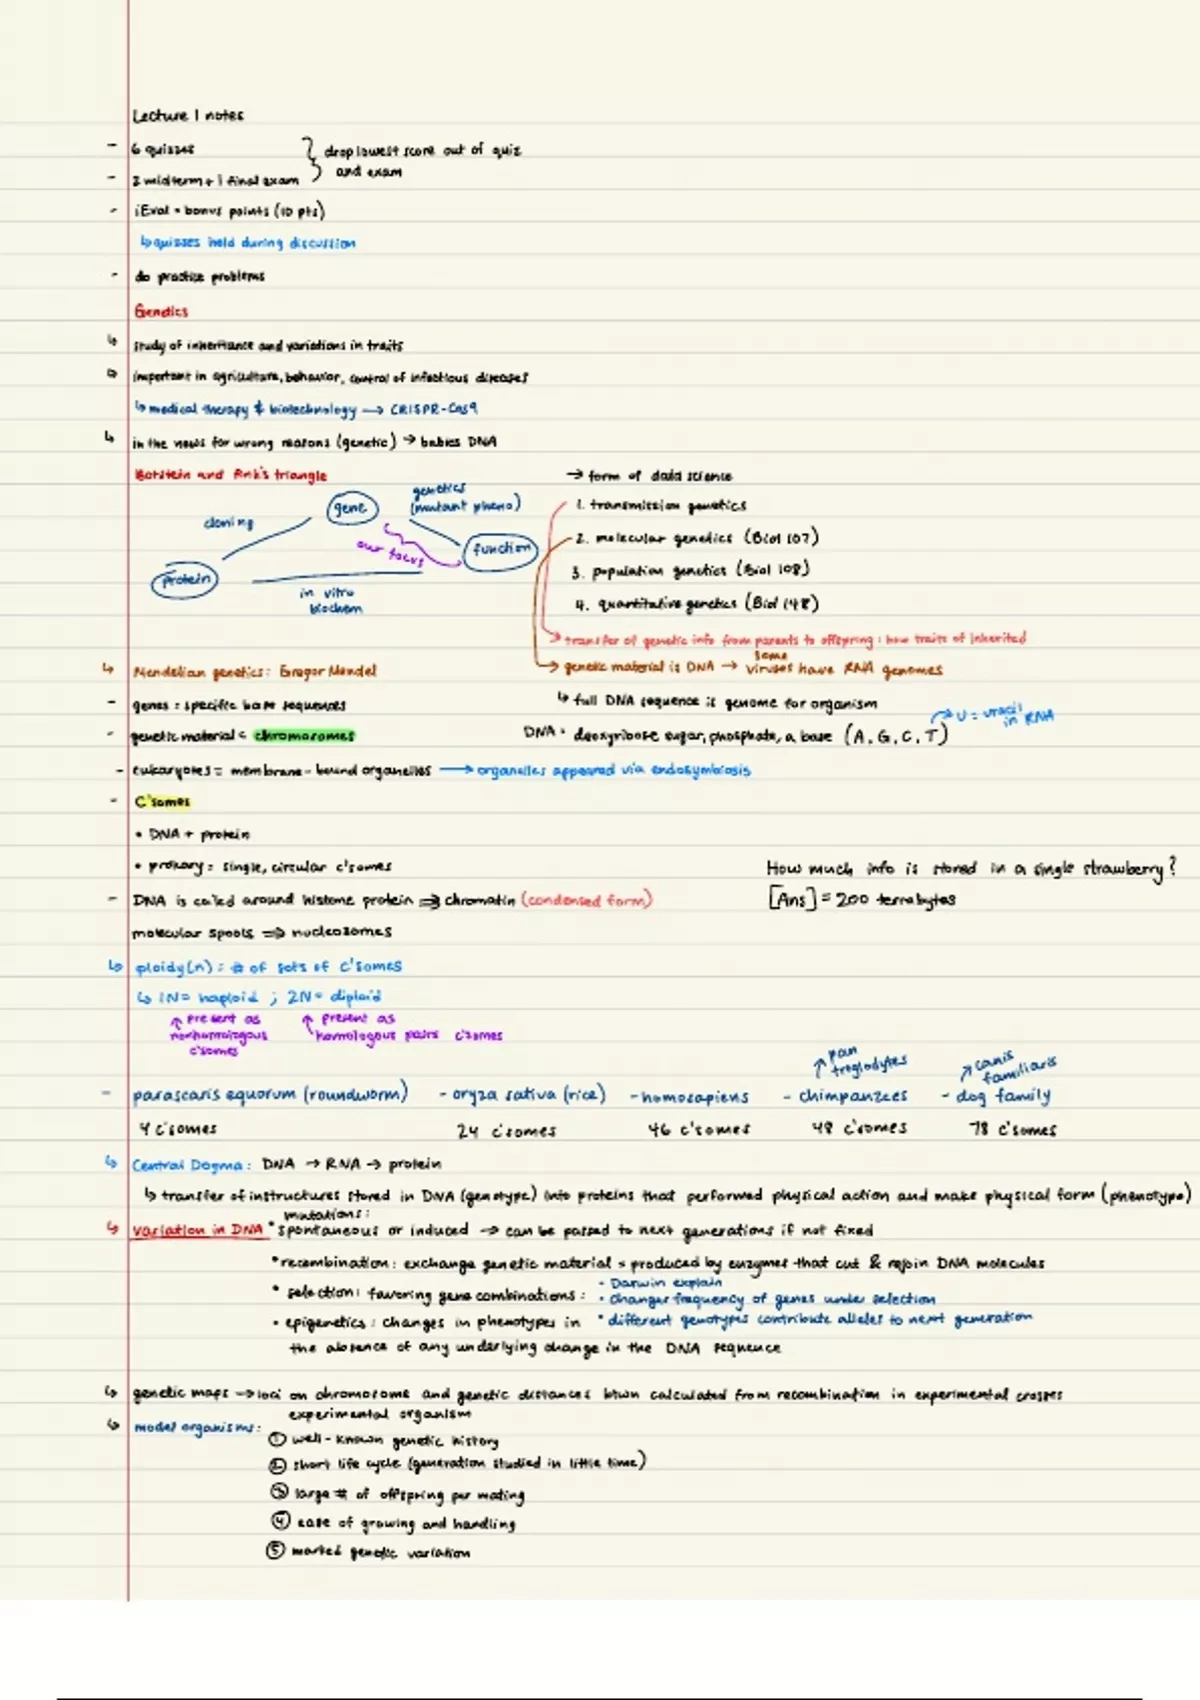 Lecture 1 notes
- 6 quizzes
- 2 midterm + 1 final exam
} drop lowest score out of quiz
and exam
- iEval = bonus points (10 pts)
↳ quizzes held during discussion
- do practice problems
Genetics
↳ study of inheritance and variations in traits
↳ important in agriculture, behavior, control of infectious diseases
↳ medical therapy & biotechnology → CRISPR-Cas9
↳ in the news for wrong reasons (genetic) → babies DNA
Botstein and Fink's triangle
gene
cloning
genetics
(mutant pheno)
our focus
function
protein
in vitro
biochem
→ form of data science
1. transmission genetics
2. molecular genetics (Biol 107)
3. population genetics (Biol 108)
4. quantitative genetics (Biol 148)
→ transfer of genetic info from parents to offspring: how traits of inherited
→ genetic material is DNA → some viruses have RNA genomes
↳ Mendelian genetics: Gregor Mendel
- genes = specific base sequences
↳ full DNA sequence is genome for organism
- genetic material = chromosomes
DNA = deoxyribose sugar, phosphate, a base (A, G, C, T)
→ U = uracil
in RNA
- eukaryotes = membrane-bound organelles → organelles appeared via endosymbiosis
- C'somes
• DNA + protein
• prokary = single, circular c'somes
How much info is stored in a single strawberry?
[Ans] = 200 terrabytes
- DNA is coiled around histone protein ⇒ chromatin (condensed form)
molecular spools ⇒ nucleosomes
↳ ploidy(n) = # of sets of c'somes
↳ 1N = haploid ; 2N = diploid
↑ present as
nonhomologous
c'somes
↑ present as
homologous pairs c'somes
↗ pan
troglodytes
↗ canis
familiaris
- parascaris equorum (roundworm) - oryza sativa (rice) - homosapiens - chimpanzees - dog family
4 c'somes 24 c'somes 46 c'somes 48 c'somes 78 c'somes
↳ Central Dogma: DNA → RNA → protein
↳ transfer of instructures stored in DNA (genotype) into proteins that performed physical action and make physical form (phenotype)
mutations:
↳ variation in DNA • spontaneous or induced → can be passed to next generations if not fixed
• recombination: exchange genetic material = produced by enzymes that cut & rejoin DNA molecules
• selection: favoring gene combinations:
• Darwin explain
• changes frequency of genes under selection
• different genotypes contribute alleles to next generation
• epigenetics: changes in phenotypes in
the absence of any underlying change in the DNA sequence
↳ genetic maps → loci on chromosome and genetic distances btwn calculated from recombination in experimental crosses
↳ model organisms:
experimental organism
① well-known genetic history
② short life cycle (generation studied in little time)
③ large # of offspring per mating
④ ease of growing and handling
⑤ marked genetic variation